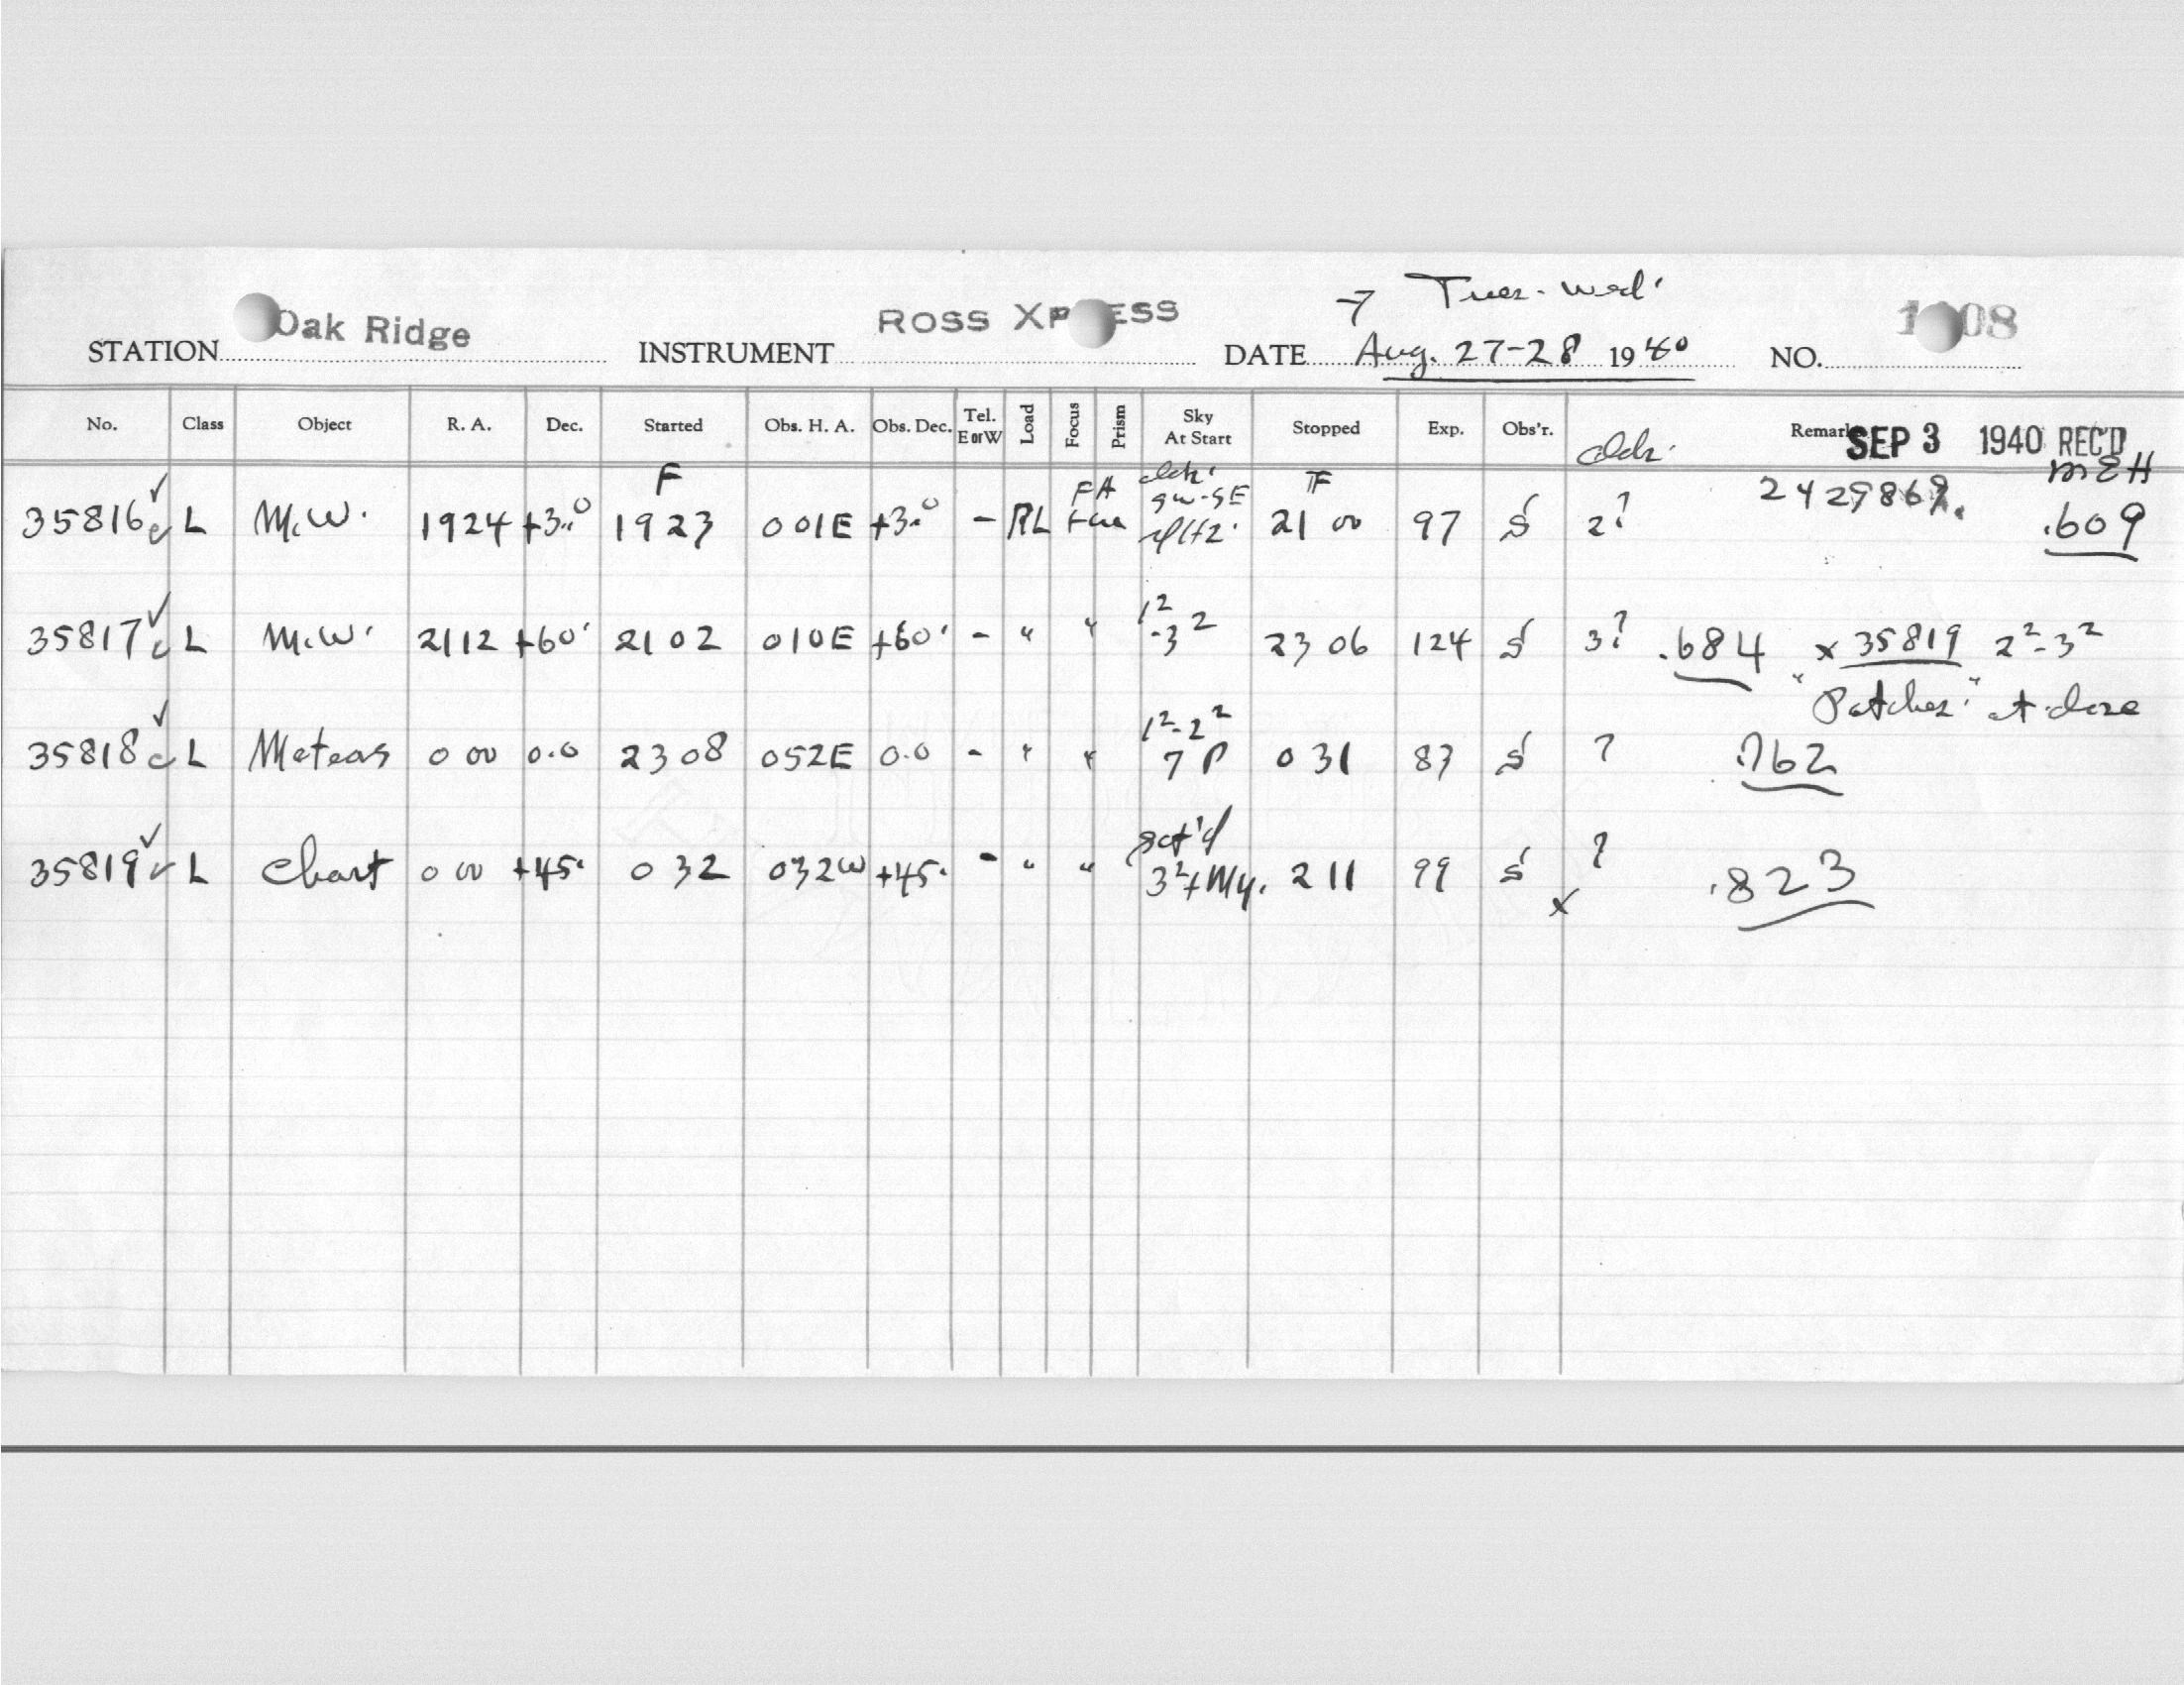 → Tues - Wed.
STATION Oak Ridge INSTRUMENT ROSS XP ESS DATE Aug. 27-28 1940 NO. 1 08
No. Class Object R. A. Dec. Started Obs. H. A. Obs. Dec. Tel. E or W Load Focus Prism Sky At Start Stopped Exp. Obs'r. Remarks SEP 3 1940 REC'D
MEH
35816 ✓ L M.W. 1924 +30 F 1923 001E +30 - RL FA SW-SE F 21 00 97 S 2? 2429869. .609
35817 ✓ L M.W. 2112 +60 2102 010E +60 - " " 1²-3² 2306 124 S 3? .684 x 35819 2²-3²
"Patches" at close
35818 ✓ L Meteors 0 00 0.0 2308 052E 0.0 - " " 1²-2² 7P 0 31 83 S ? .762
35819 ✓ L Chart 0 00 +45 0 32 032W +45 - " " sct'd 3²+My. 2 11 99 S x ? .823